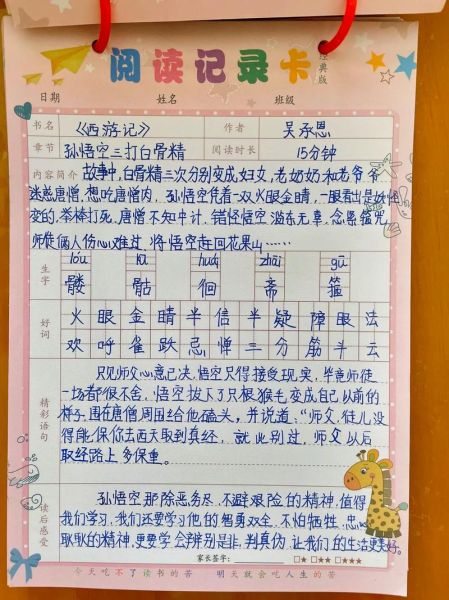 阅读记录卡 经典版
日期 姓名 班级
书名 《西游记》 作者 吴承恩
章节 孙悟空三打白骨精 阅读时长 15分钟
内容简介 故事中,白骨精三次分别变成妇女,老奶奶和老爷爷
迷惑唐僧,想吃唐僧肉,孙悟空凭着一双火眼金睛,一眼看出是妖怪
变的,举棒打死,唐僧不知中计,错怪悟空滥杀无辜,念紧箍咒
师徒俩人伤心难过,将悟空赶回花果山……
生字
lóu kū huái zhāi gū
髅 骷 徊 斋 箍
好词
火眼金睛半信半疑障眼法
欢呼雀跃忌惮三分筋斗云
精彩语句
只见师父心意已决,悟空只得接受现实,毕竟师徒
一场都很不舍,悟空拔下了几根猴毛变成自己以前的
样子,围在唐僧周围给他磕头,并说道:“师父,徒儿没
得能保你去西天取到真经,就此别过,师父以后
取经路上多保重。
读后感受
孙悟空那除恶务尽,不避艰险的精神,值得
我们学习,我们还要学习他的智勇双全,不怕牺牲,忠心
耿耿的精神,更要学会辨别是非,判真伪,让我们的生活更美好。
家长签字: □★ □★★ □★★★
今天吃不了读书的苦 明天就会吃人生的苦